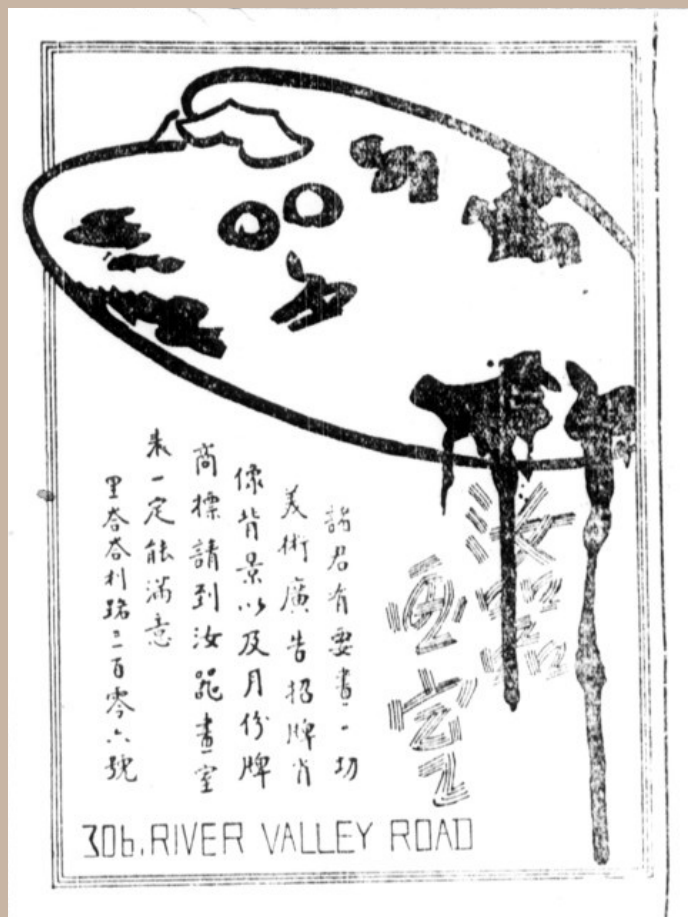 汝器
画室
諸君有要畫一切
美術廣告招牌肖
像背景以及月份牌
商標請到汝器畫室
来一定能滿意
里峇峇利路三百零六號
306, RIVER VALLEY ROAD